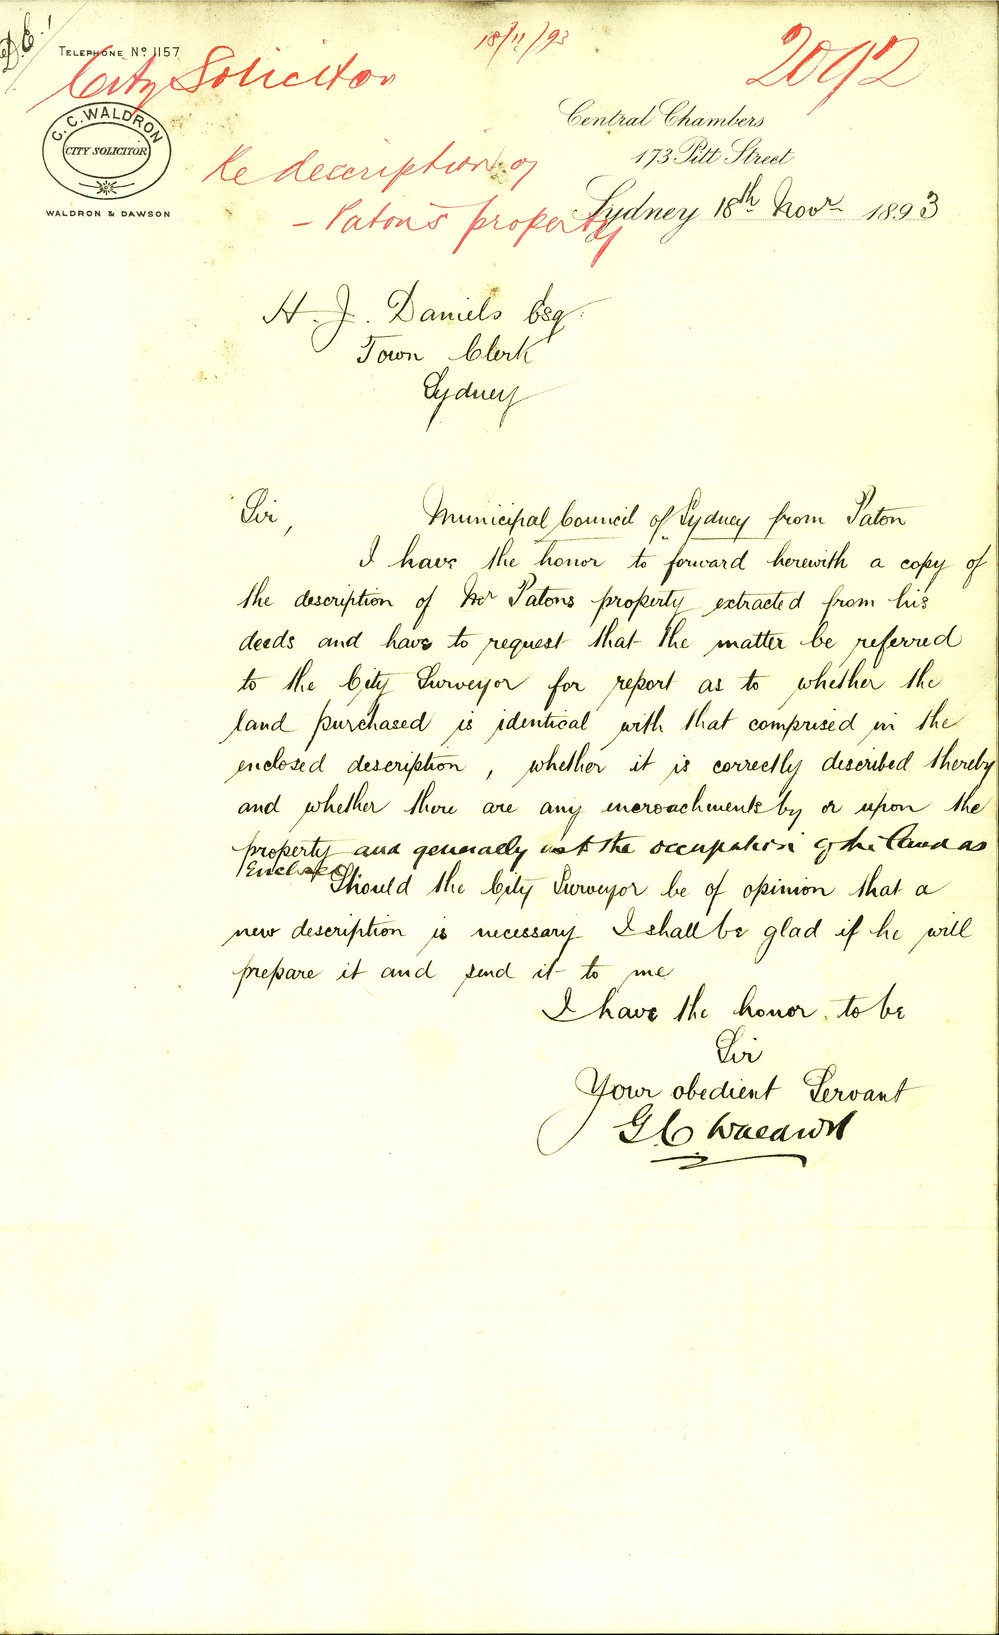 D.E.!
18/11/93
2092
TELEPHONE No 1157
City Solicitor
C.C. WALDRON
CITY SOLICITOR
WALDRON & DAWSON
Central Chambers
173 Pitt Street
Re description of
- Paton's property
Sydney 18th Novr 1893
H. J. Daniels Esq.
Town Clerk
Sydney
Sir, Municipal Council of Sydney from Paton
I have the honor to forward herewith a copy of
the description of Mr Patons property extracted from his
deeds and have to request that the matter be referred
to the City Surveyor for report as to whether the
land purchased is identical with that comprised in the
enclosed description, whether it is correctly described thereby
and whether there are any encroachments by or upon the
property and generally as to the occupation of the land as
Enclosed
Should the City Surveyor be of opinion that a
new description is necessary I shall be glad if he will
prepare it and send it to me
I have the honor to be
Sir
Your obedient Servant
G C Waldron